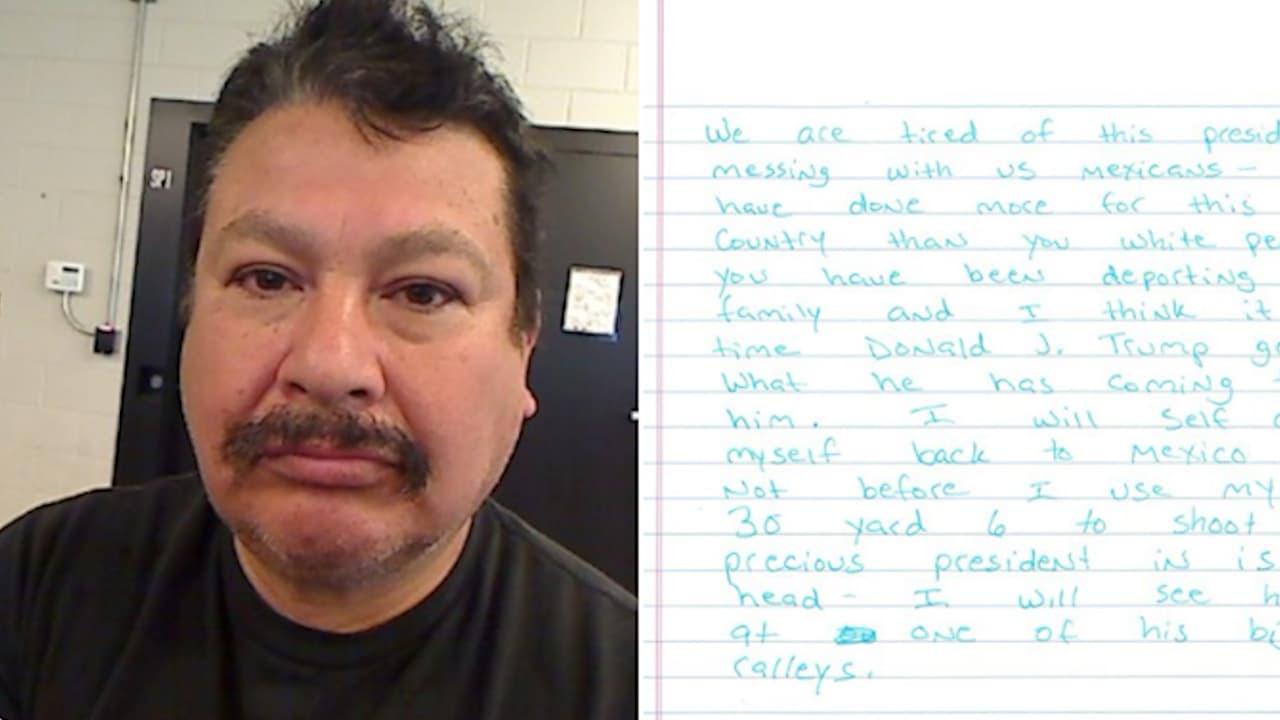 SPI
We are tired of this presid
messing with us mexicans -
have done more for this
Country than you white pe
you have been deporting
family and I think it
time Donald J. Trump g
What he has coming t
him. I will self d
myself back to Mexico
Not before I use my
30 yard 6 to shoot
precious president in is
head - I will see h
at one of his bi
ralleys.